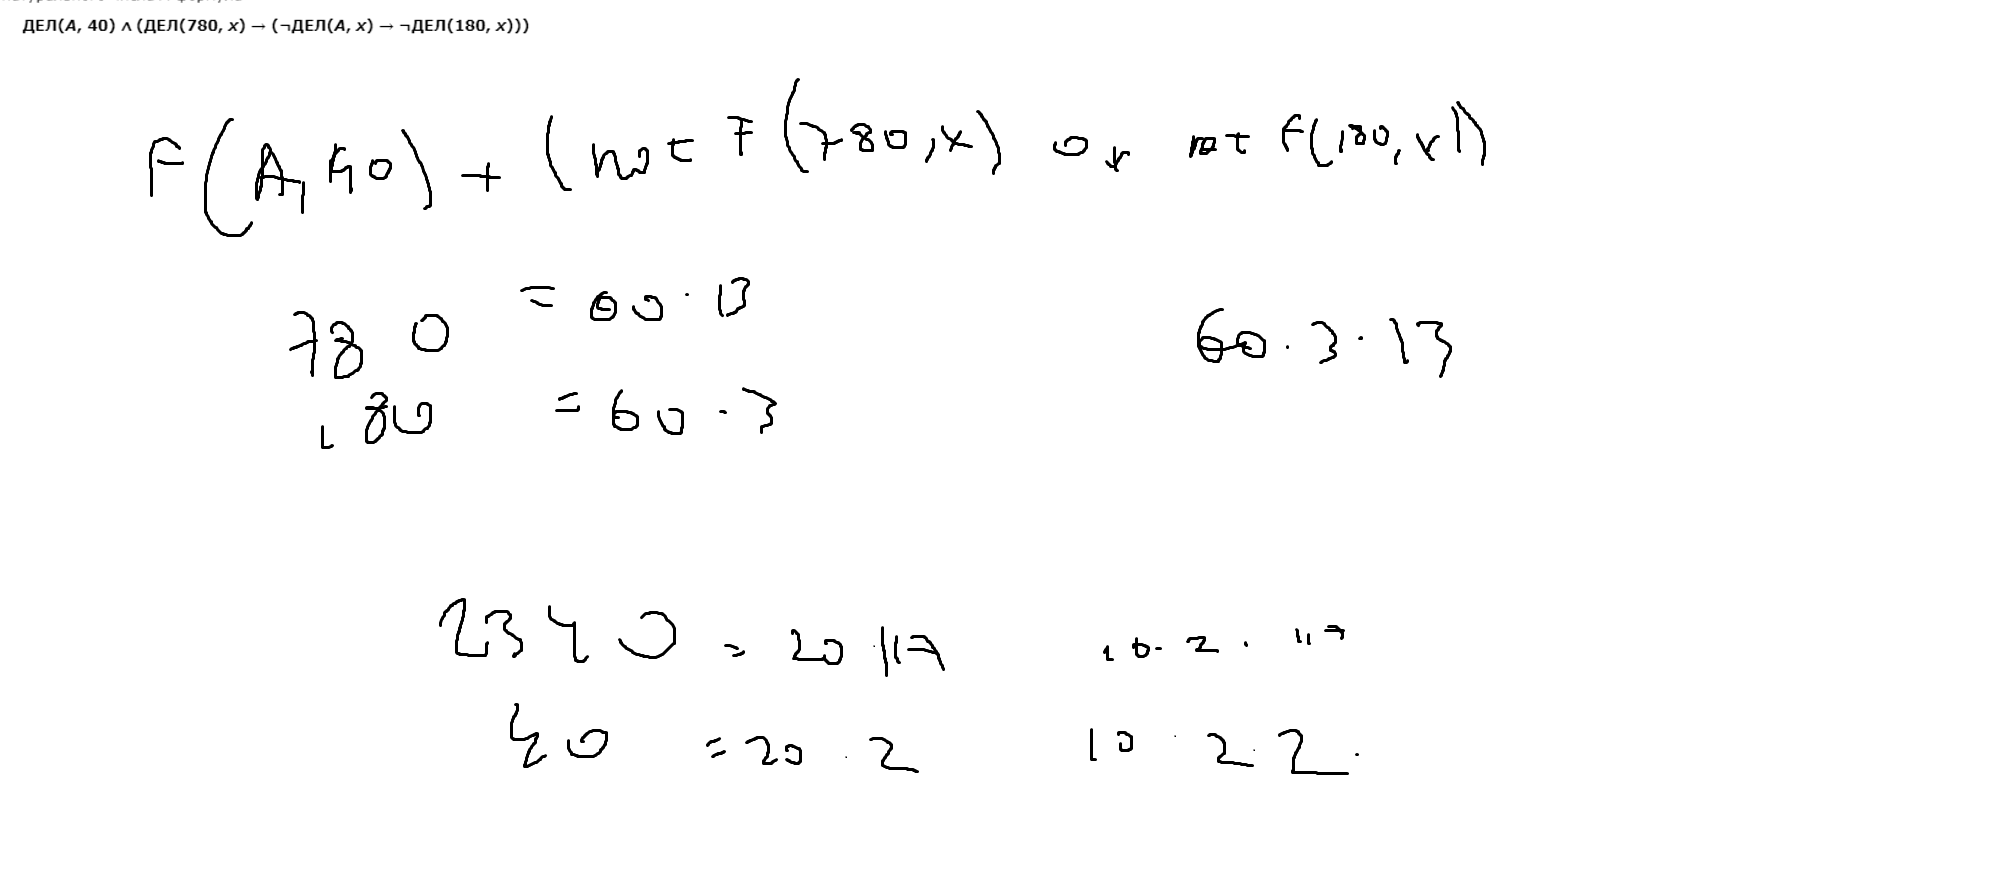 ДЕЛ(A, 40) ∧ (ДЕЛ(780, x) → (¬ДЕЛ(A, x) → ¬ДЕЛ(180, x)))
F(A, 40) + (not F(780, x) or not F(180, x))
780 = 60 · 13
60 · 3 · 13
180 = 60 · 3
2340 = 20 117
10 · 2 · 117
40 = 20 · 2
10 · 2 · 2 ·